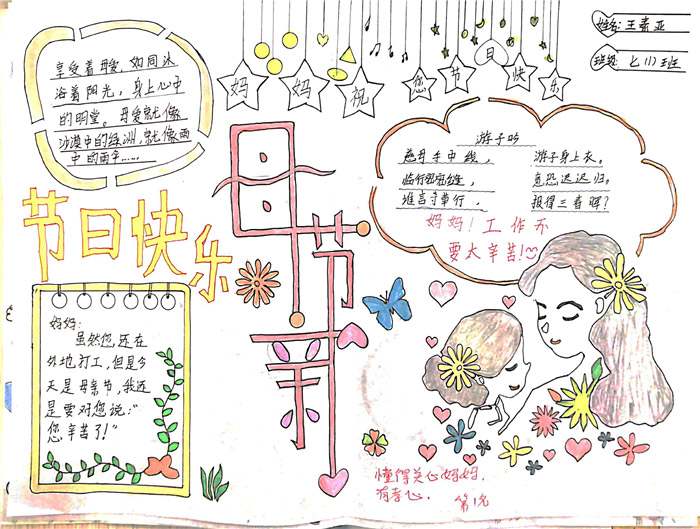 姓名:王素亚
班级:七(1)班
妈妈祝您节日快乐
享受着母爱,如同沐
浴着阳光,身上心中
的明堂。母爱就像
沙漠中的绿洲,就像雨
中的雨伞……
游子吟
慈母手中线,
游子身上衣。
临行密密缝,
意恐迟迟归。
谁言寸草
报得三春晖?
妈妈!工作不
要太辛苦!
节日快乐
母亲节
妈妈:
虽然您还在
外地打工,但是今
天是母亲节,我还
是要对您说:“
您辛苦了!”
懂得关心妈妈,
有孝心.